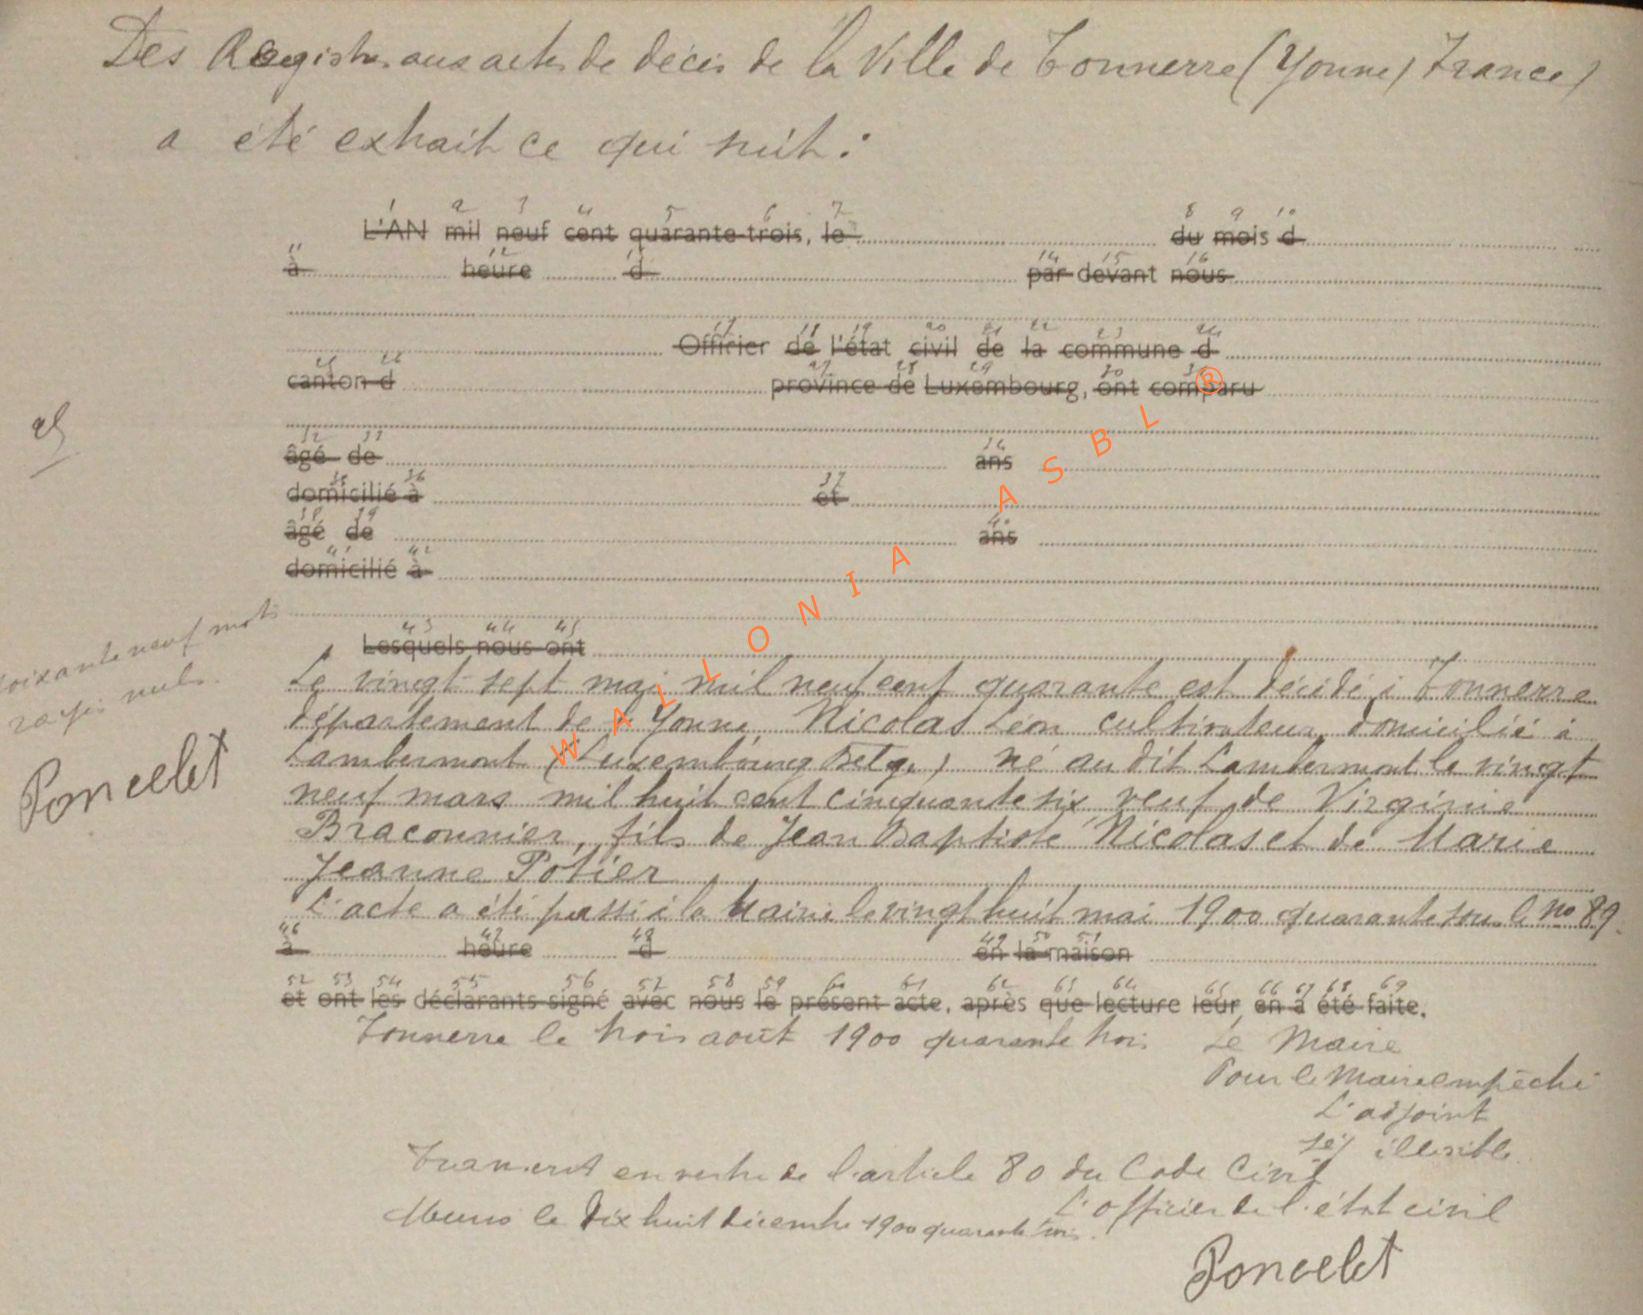 Des Registres aux actes de décès de la Ville de Tonnerre (Yonne) France)
a été extrait ce qui suit :
1 2 3 4 5 6 7 8 9 10
L'AN mil neuf cent quarante-trois, le du mois d
11 12 13 14 15 16
à heure d par devant nous
17 18 19 20 21 22 23 24
Officier de l'état civil de la commune d
25 26 27 28 29 30 31
canton d province de Luxembourg, ont comparu
25
32 33 34
âgé de ans
35 36 37
domicilié à et
38 39 40
âgé de ans
41 42
domicilié à
43 44 45
Lesquels nous ont
Soixante neuf mots
rayés nuls.
Poncelet
Le vingt sept mai mil neuf cent quarante est décédé à Tonnerre
département de l'Yonne, Nicolas Léon cultivateur, domicilié à
Lambermont (Luxembourg Belge) né au dit Lambermont le vingt
neuf mars mil huit cent cinquante six veuf de Virginie
Braconnier, fils de Jean Baptiste Nicolas et de Marie
Jeanne Potier
L'acte a été passé à la Mairie le vingt huit mai 1900 quarante sous le no 89.
46 47 48 49 50 51
à heure d en la maison
52 53 54 55 56 57 58 59 60 61 62 63 64 65 66 67 68 69
et ont les déclarants signé avec nous le présent acte, après que lecture leur en a été faite.
Tonnerre le trois août 1900 quarante trois Le Maire
Pour le Maire empêché
L'adjoint
sé) illisible
Transcrit en vertu de l'article 80 du Code Civil
Muno le dix huit décembre 1900 quarante trois. L'officier de l'état civil
Poncelet
WALLONIA ASBL ®